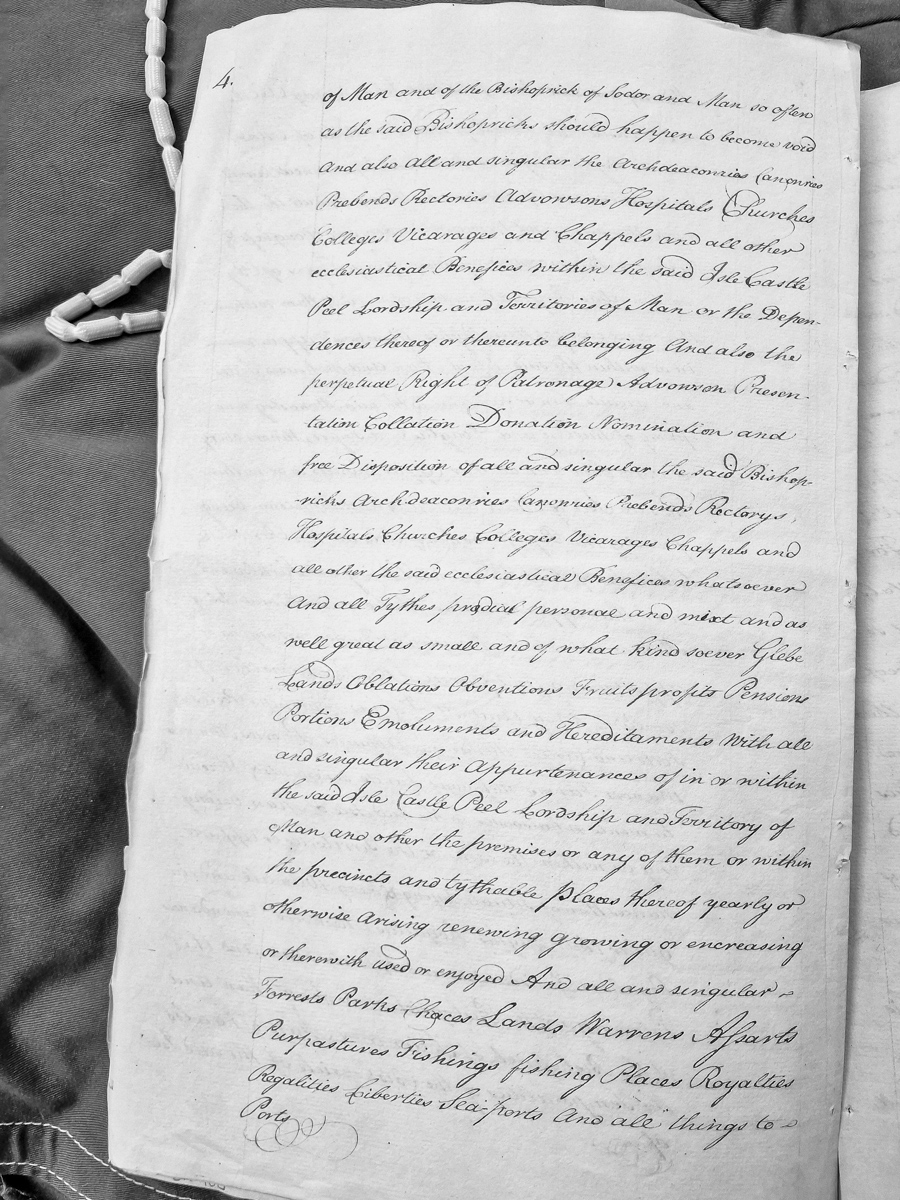 4.
of Man and of the Bishoprick of Sodor and Man so often
as the said Bishopricks should happen to become void
And also all and singular the Archdeaconries Canonries
Prebends Rectories Advowsons Hospitals Churches
Colleges Vicarages and Chappels and all other
ecclesiastical Benefices within the said Isle Castle
Peel Lordship and Territories of Man or the Depen-
dences thereof or thereunto belonging And also the
perpetual Right of Patronage Advowson Presen-
tation Collation Donation Nomination and
free Disposition of all and singular the said Bishop-
-ricks Archdeaconries Canonries Prebends Rectorys,
Hospitals Churches Colleges Vicarages Chappels and
all other the said ecclesiastical Benefices whatsoever
And all Tythes predial personal and mixt and as
well great as small and of what kind soever Glebe
Lands Oblations Obventions Fruits profits Pensions
Portions Emoluments and Hereditaments With all
and singular their appurtenances of in or within
the said Isle Castle Peel Lordship and Territory of
Man and other the premises or any of them or within
the precincts and tythable places thereof yearly or
otherwise arising renewing growing or encreasing
or therewith used or enjoyed And all and singular -
Forrests Parks Chaces Lands Warrens Assarts
Purpastures Fishings fishing Places Royalties
Regalities Liberties Sea-ports And all things to -
Ports